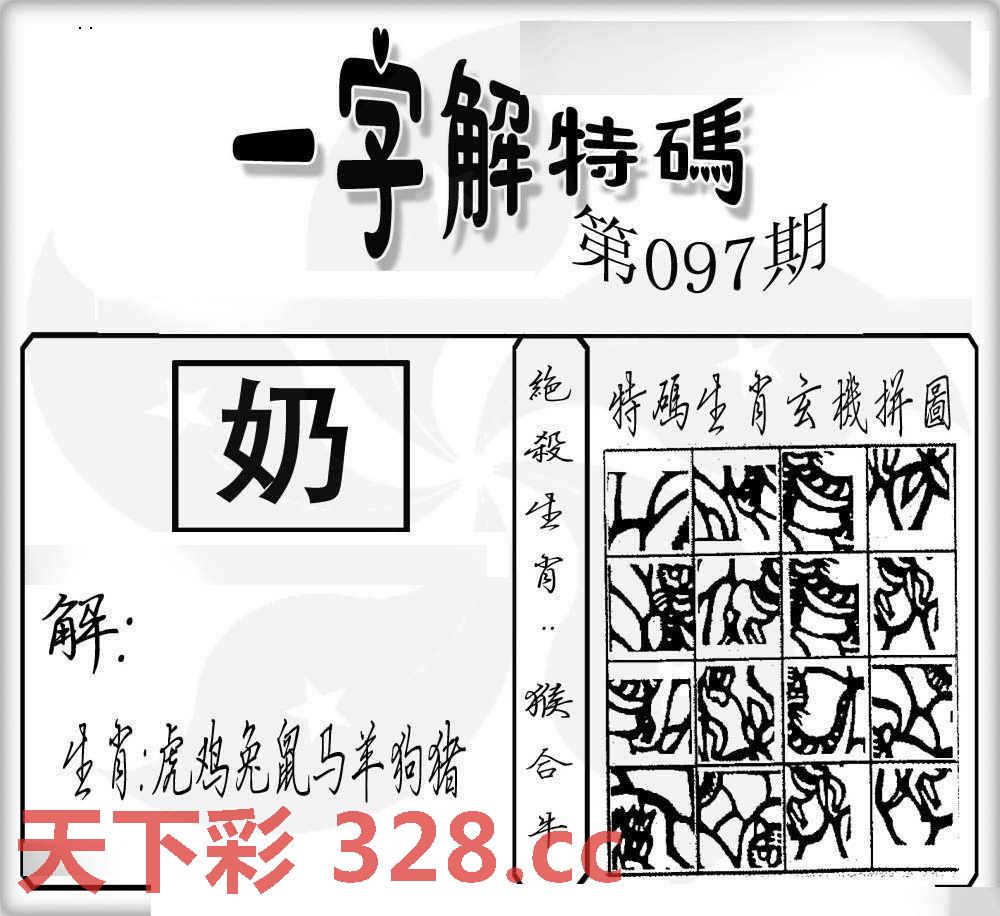 一字解特碼
第097期
奶
解:
生肖:虎鸡兔鼠马羊狗猪
絶殺生肖:猴合牛
特碼生肖玄機拼圖
天下彩 328.cc